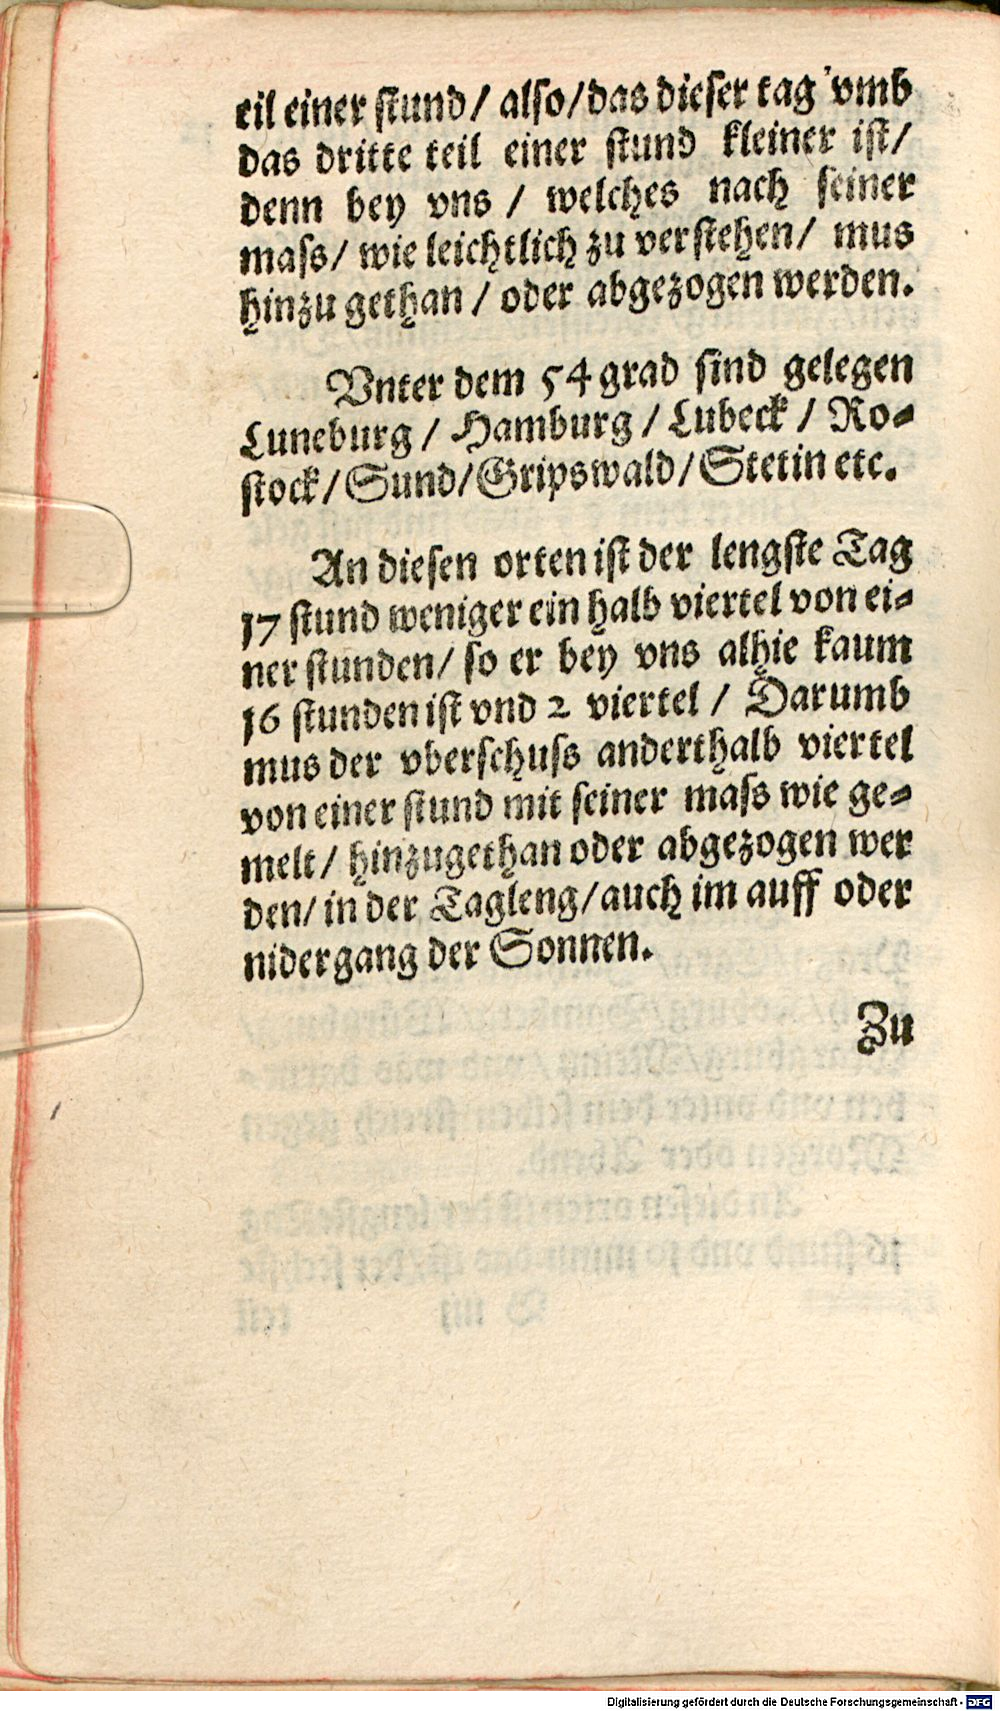 teil einer stund/ also/das dieser tag vmb
das dritte teil einer stund kleiner ist/
denn bey vns / welches nach seiner
mass/ wie leichtlich zu verstehen/ mus
hinzu gethan / oder abgezogen werden.
Vnter dem 54 grad sind gelegen
Luneburg / Hamburg / Lubeck / Ro-
stock/Sund/Gripswald/Stetin etc.
An diesen orten ist der lengste Tag
17 stund weniger ein halb viertel von ei-
ner stunden/ so er bey vns alhie kaum
16 stunden ist vnd 2 viertel / Darumb
mus der vberschuss anderthalb viertel
von einer stund mit seiner mass wie ge-
melt/ hinzugethan oder abgezogen wer
den/ in der Tagleng/auch im auff oder
nidergang der Sonnen.
Zu
Digitalisierung gefördert durch die Deutsche Forschungsgemeinschaft - DFG